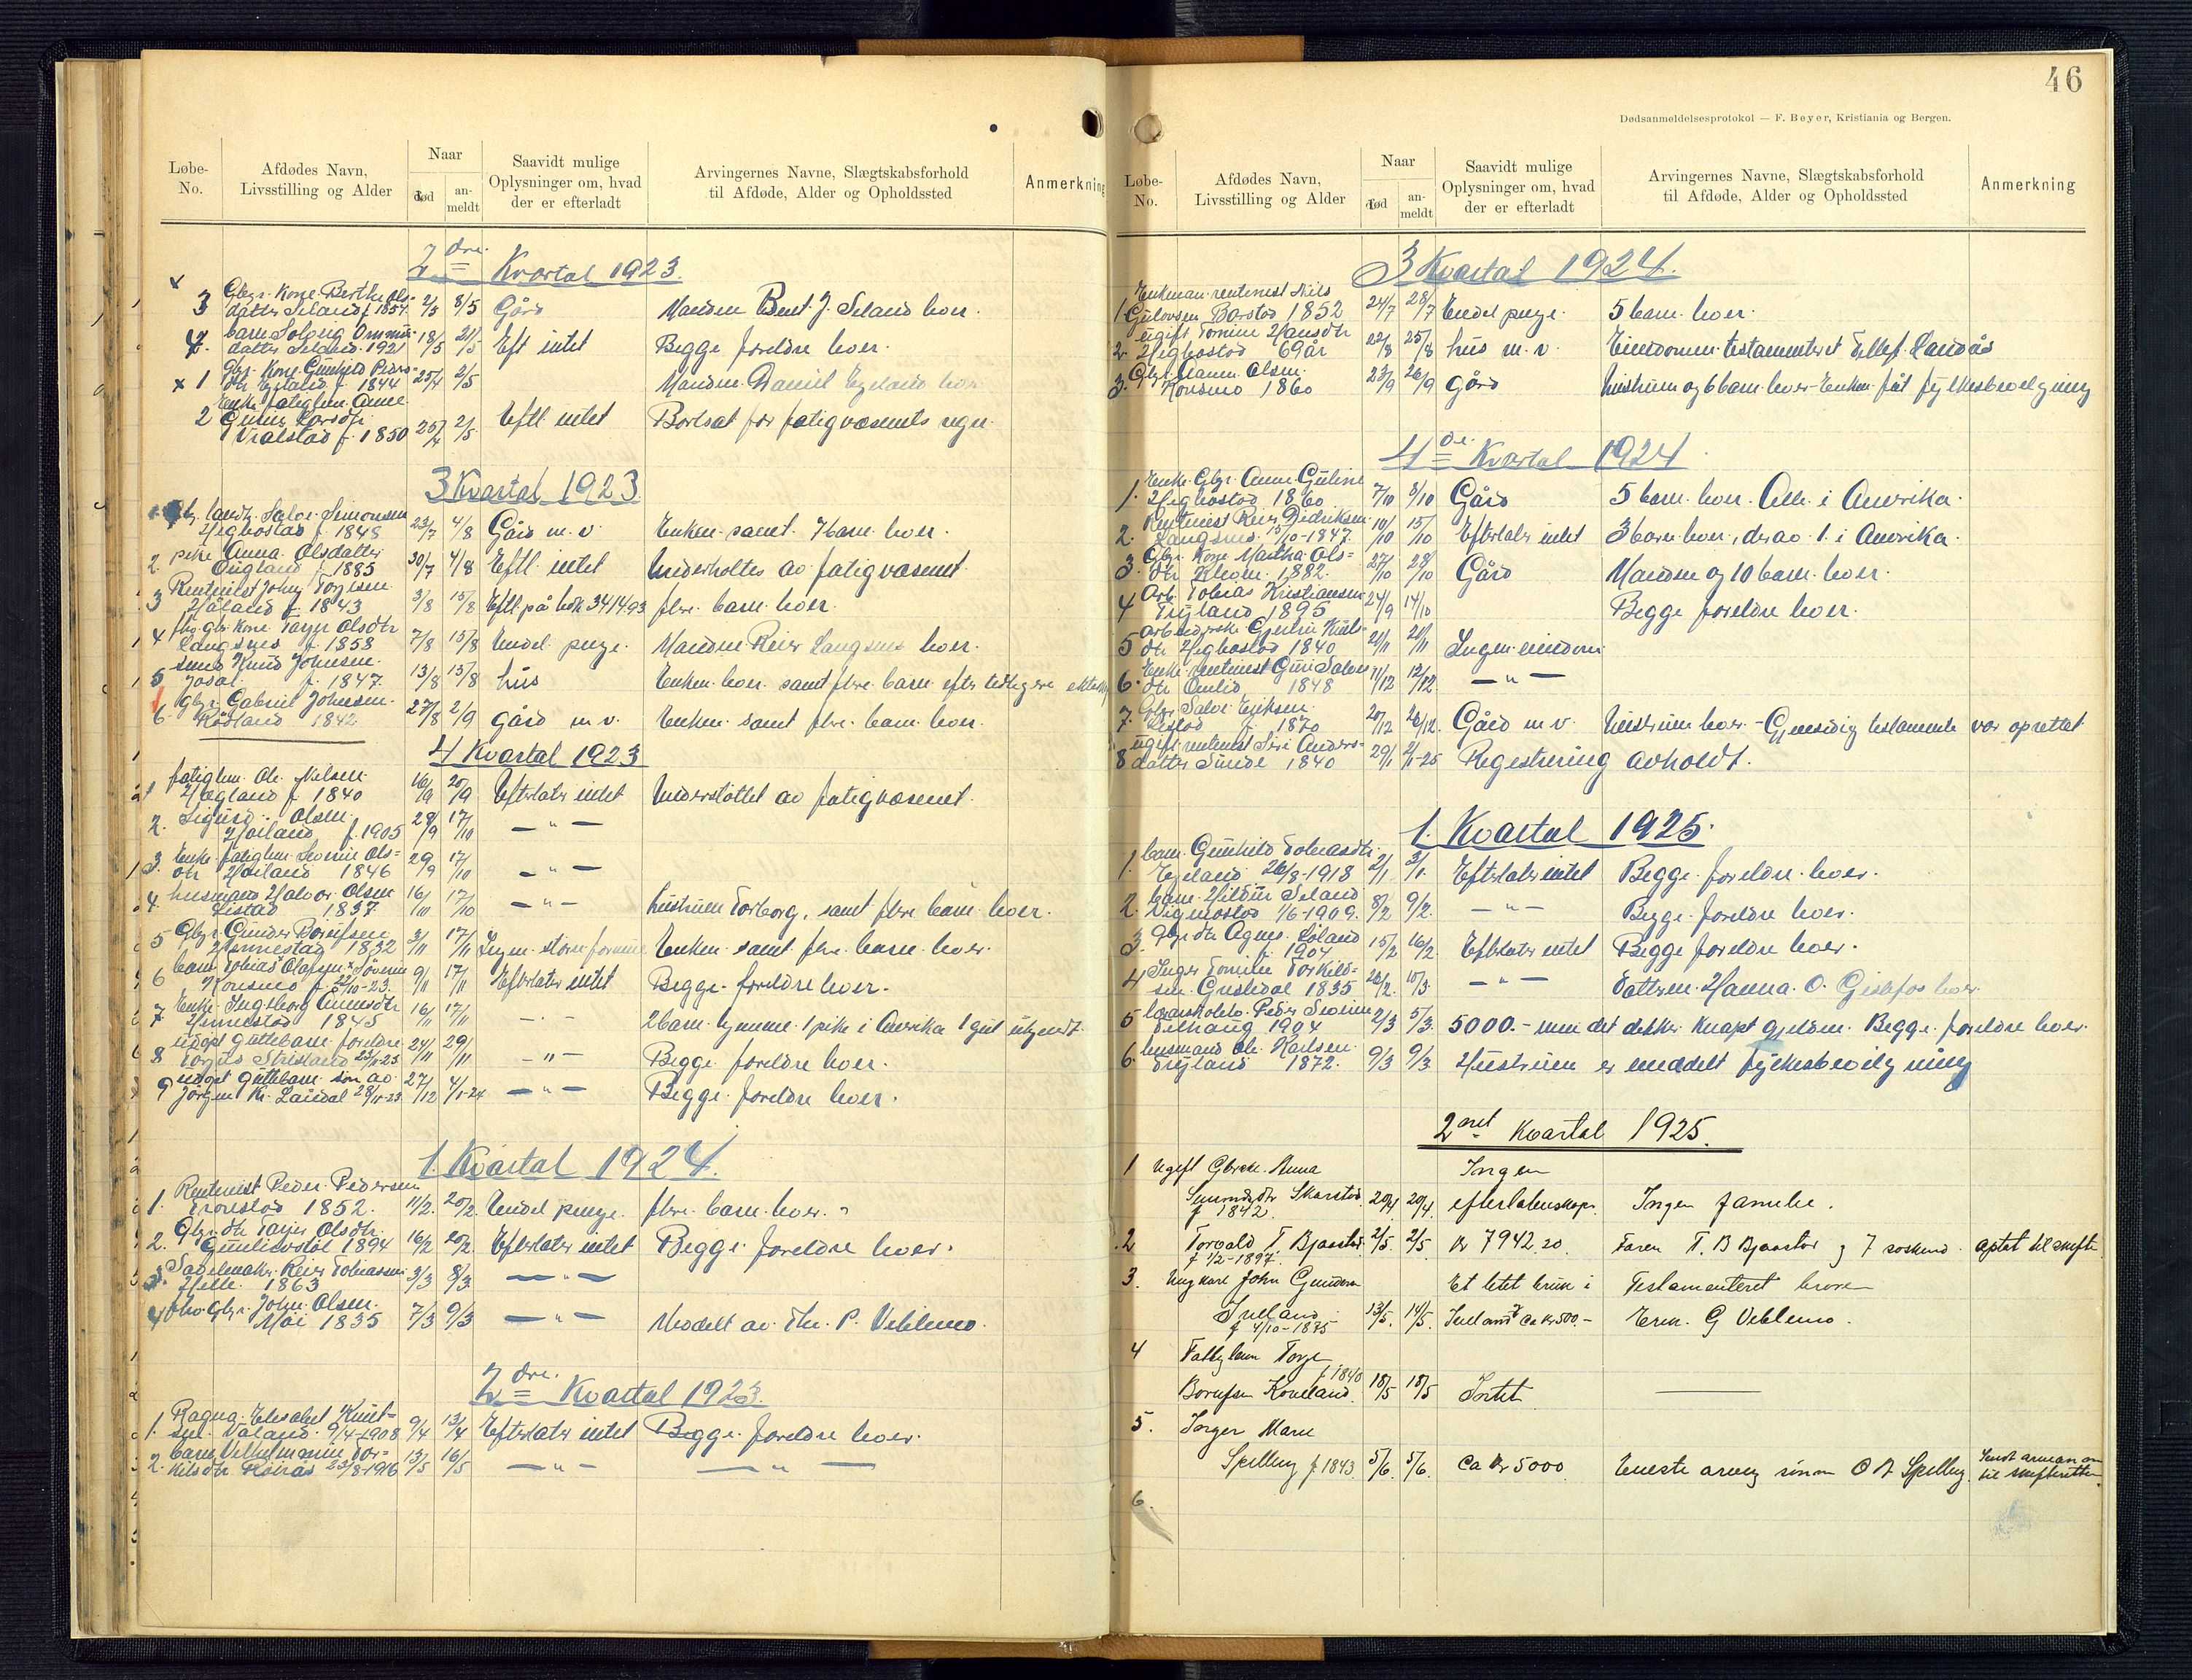 Løbe-No.
Afdødes Navn, Livsstilling og Alder
Naar
død
an-meldt
Saavidt mulige Oplysninger om, hvad der er efterladt
Arvingernes Navne, Slægtskabsforhold til Afdøde, Alder og Opholdssted
Anmerkning
2 dre Kvartal 1923.
x 3 Gbr. Kone Berthe Ols-
datter Seland f. 1854 2/5 8/5 Gård Manden Bent J. Seland lever.
4. barn Solveig
datter Seland 1921 18/5 21/5 Eft intet Begge foreldre lever.
x 1 Gbr. Kone Gunhild Peders-
dtr Egeland f. 1844 25/4 2/5 Manden Daniel Egeland lever
Enke fatiglem Anne
2 Gurine Larsdtr
Vralstad f. 1850 25/4 2/5 Eftl intet Bortsat for fatigvæsenets regn.
3 Kvartal 1923.
Salve Simonsen
Heghostad f. 1848 23/7 4/8 Gård m.v. Enken samt 7 barn lever.
2. pike Anna Olsdatter
Øigland f. 1885 30/7 4/8 Eftl. intet Underholtes av fatigvæsenet.
3 Rentenist John Torjesen
Håland f. 1843 3/8 15/8 Eftl. på bok 341493 flere barn lever.
4 fho. gbr. kone Tarjer Olsdtr
Langenes f 1858 7/8 15/8 Endel penge. Manden Reier Langenes lever.
5 smed Knud Johnsen
Josal f. 1847. 13/8 15/8 hus Enken lever samt flere barn efter tidligere
6. Gbr. Gabriel Johnsen.
Rødland 1842 27/8 2/9 gård m v. Enken samt flere barn lever.
4 Kvartal 1923
1 fatiglem Ole Nilsen
Hægland f. 1840 16/9 20/9 Efterlater intet Understøttet av fatigvæsenet.
2. Sigurd Olsen
Høiland f. 1905 28/9 17/10 — " —
3. Enke fatiglem Severine Ols-
dtr Høiland 1846 29/9 17/10 — " —
4. husmand Halvor Olsen
Listad 1837. 16/10 17/10 — " — hustruen Torborg, samt flere barn lever.
5 Gbr. Gunder Berntsen
Hennestad 1832 3/11 17/11 Ingen større formue Enken samt flere barn lever.
6 barn Tobias Olafsen
Konsmo f. 22/10-23. 9/11 17/11 Efterlater intet Begge foreldre lever.
7 Enke Ingeborg Gunnsdtr
Hennestad 1845 16/11 17/11 — " — 2 barn hjemme. 1 pike i Amerika 1 gut
8 udøpt guttebarn foreldre
Torjus Stusland 23/11-23 24/11 29/11 — " — Begge foreldre lever.
9 udøpt guttebarn søn av
Jørgen Kr. Laudal 28/11-23 27/12 4/1-24 — " — Begge foreldre lever.
1. Kvartal 1924.
1. Rentenist Peder Pedersen
Trorestad 1852. 11/2. 20/2. Endel penge. flere barn lever.
2. Gbr. dtr Tarjer Olsdtr.
1894 16/2 20/2. Efterlater intet Begge foreldre lever.
3. Sadelmaker Reier Tobiassen
Helle. 1863 3/3 8/3 — " —
4 fho. Gbr. John Olsen
Møi 1835 7/3 9/3 — " — Meddelt av The. P. Veblemo.
2 dre. Kvartal 1923.
1. Ragna Elisabet Knut-
sen Våland 9/4-1908 9/4 13/4 Efterlater intet Begge foreldre lever.
2. barn Vilhelmine Tor-
kilsdtr 23/8-1916 13/5 16/5 — " — — " —
46
Dødsanmeldelsesprotokol — F. Beyer, Kristiania og Bergen.
Løbe-No.
Afdødes Navn, Livsstilling og Alder
Naar
død
an-meldt
Saavidt mulige Oplysninger om, hvad der er efterladt
Arvingernes Navne, Slægtskabsforhold til Afdøde, Alder og Opholdssted
Anmerkning
3 Kvartal 1924.
Enkeman rentenist Nils
1 Gulovsen Borstad 1852 24/7 28/7 Endel penge. 5 barn lever.
ugift Tomine Hansdtr
2. Heghostad 69 år 22/8 25/8 hus m.v. Eiendomen testamenteret Tellef Landås
3. Gbr. Olsen.
Konsmo 1860 23/9 26/9 gård hustruen og 6 barn lever - Enken fåt fylkesbevilgning
4 de. Kvartal 1924
1. Enke Gbr. Anne Guline
Heghostad 1860 7/10 8/10 Gård 5 barn lever. Alle i Amerika.
2. Rentenist Reier Didriksen
Langenes 15/10-1847. 10/10 15/10 Efterlater intet 3 barn lever, derav 1 i Amerika.
3. Gbr. Kone Martha Ols-
dtr 1882. 27/10 28/10 Gård Manden og 10 barn lever.
4 Arb. Tobias Kristiansen
Trygland 1895 24/9 14/10 Begge foreldre lever.
5 arbeiderske Gjertru
dtr Heghostad 1840 20/11 20/11 Ingen eiendom
6. Enke rentenist Guri Salves
dtr Omlid 1848 11/12 12/12 — " —
7. Gbr Salve Eriksen
f. 1870 20/12 26/12. Gård m v. hustruen lever. - Gjensidig testamente var oprettet
8 ugift rentenist Siri Anders-
datter Sunde 1840 29/1 2/1-25 Regestrering avholdt.
1. Kvartal 1925.
1. barn Gunhild Tobiasdtr.
Egeland 26/8-1918 2/1 3/1. Efterlater intet Begge foreldre lever.
2. barn Hildur Seland
Vigmostad 1/6-1909. 8/2 9/2. — " — Begge foreldre lever.
3. gbr dtr Agnes Løland
f. 1904 15/2 16/2. Efterlater intet Begge foreldre lever.
4 Inger Tomine Torkild-
sen Gusledal 1835 26/2. 10/3. — " — Datteren Hanna O. Gislefos lever.
5 Peder Severin
1904 2/3 5/3. 5000.- men det dekker knapt gjelden. Begge foreldre lever.
6. husmand Ole Karlsen
Trygland 1872. 9/3 9/3. Hustruen er meddelt fylkesbevilgning
2 net Kvartal 1925.
1 Ugift Anna Ingen
Skarstad 20/4 20/4. efterlatenskaper. Ingen familie.
f 1842.
2 Torvald T. Bjaastad 2/5. 2/5 Kr 7942,20. Faren T. B Bjaastad og 7 søskend. aptat til skifte
f 1/2-1897.
3. Ungkarl John Et litet bruk i Testamenteret broren
13/5. 14/5. ca kr 500.- G Veblemo.
f 4/10-1835
4 Fattiglem Torje
f. 1840
Berntsen Koveland. 18/5 18/5 Intet ———
5. Inger Marie
Spilling f 1843. 5/6. 5/6. Ca Kr 5000. Eneste arving sønnen O A Spilling.
til skifteretten
6.